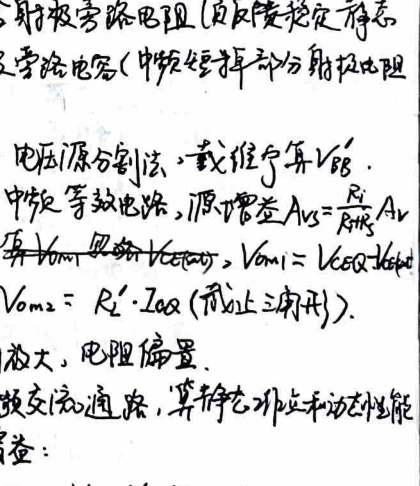 射极旁路电阻(负反馈稳定静态
旁路电容(中频短掉部分射极电阻
电压源分割法,戴维宁算V'BB.
中频等效电路,源增益Avs=Ri/(Ri+Rs) Av
算Vom1 忽略VCE(sat), Vom1=VCEQ-VCE(sat
Vom2=RL'·ICQ(截止三角形).
放大,电阻偏置.
频交流通路,算静态工作点和动态性能
益: